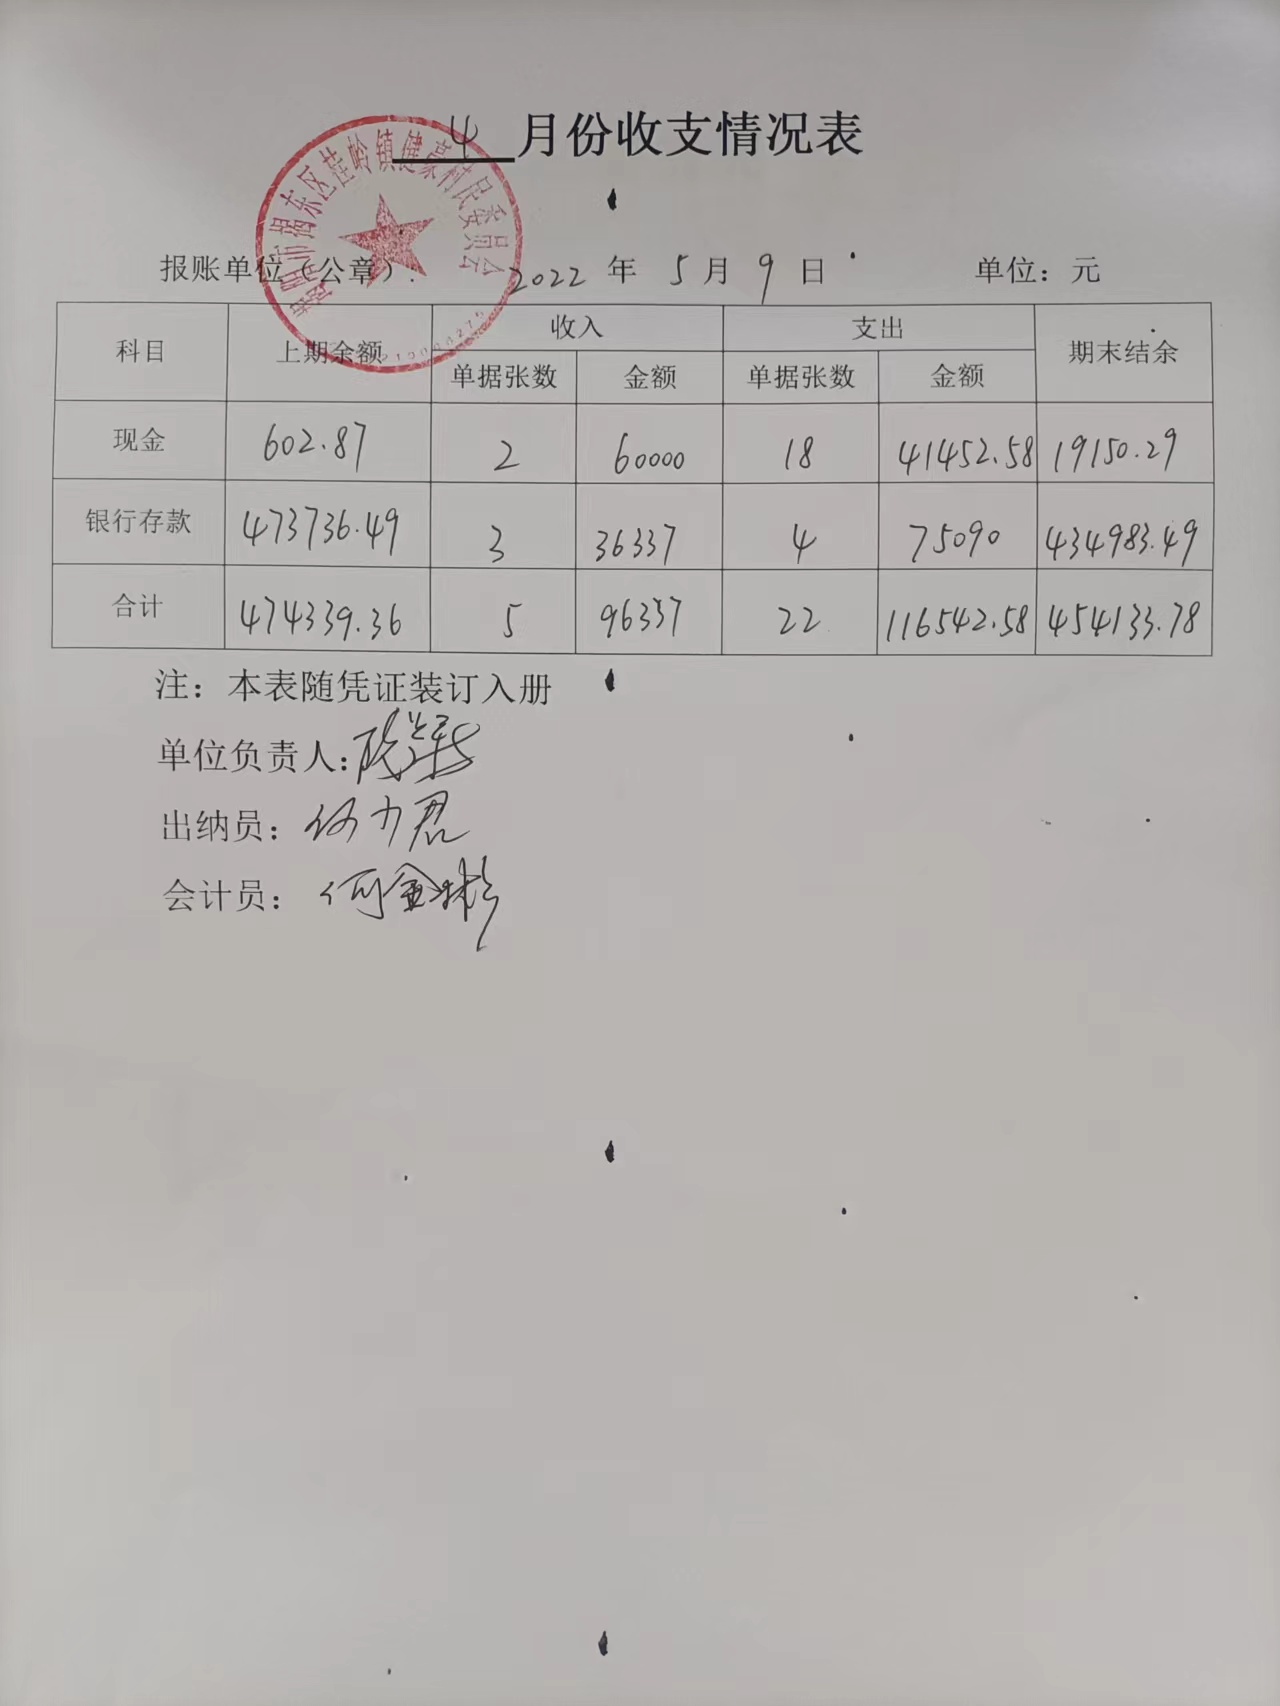 4 月份收支情况表
揭阳市揭东区桂岭镇健豪村民委员会
报账单位（公章）： 2022 年 5 月 9 日 单位：元
科目 上期余额 收入 支出 期末结余
单据张数 金额 单据张数 金额
现金 602.87 2 60000 18 41452.58 19150.29
银行存款 473736.49 3 36337 4 75090 434983.49
合计 474339.36 5 96337 22 116542.58 454133.78
注：本表随凭证装订入册
单位负责人：
出纳员：何力君
会计员：何金彬